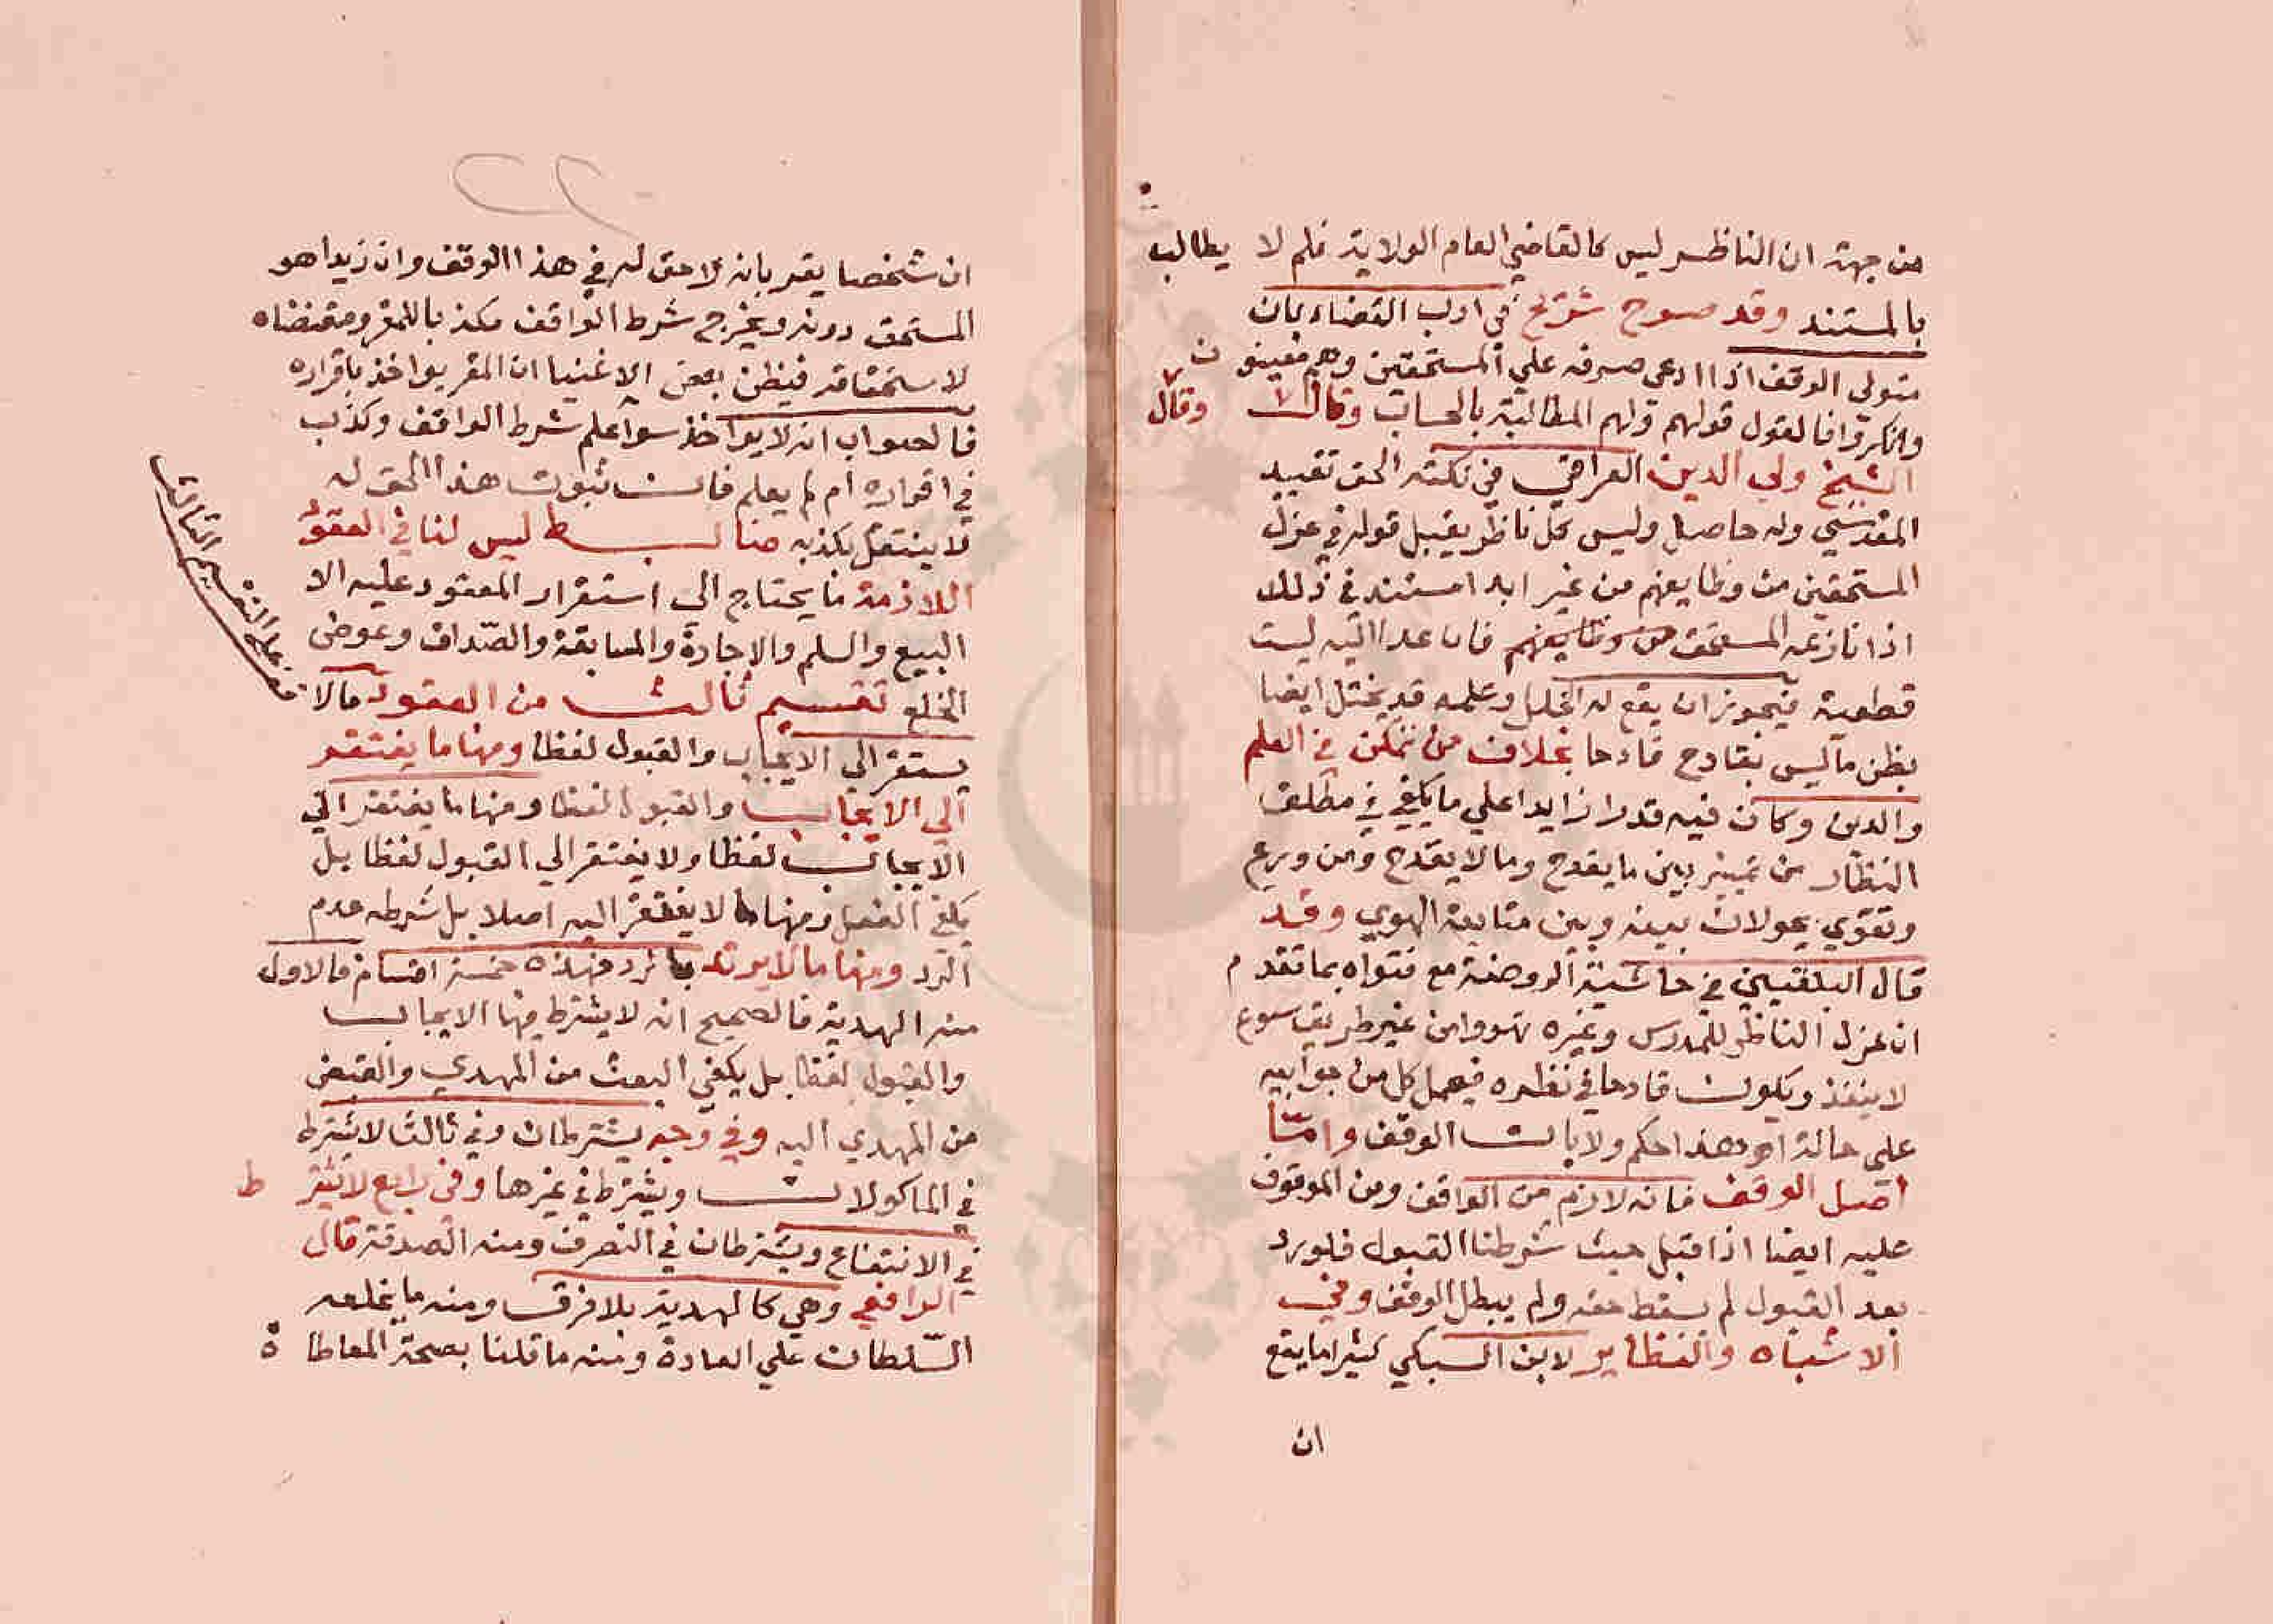 من جهة ان الناظر ليس كالقاضي العام الولاية فلم لا يطالب
بالمستند وقد صرح شريح في ادب القضاء بان
متولي الوقف اذا ادعي صرفه علي المستحقين وهم معينون
وانكروا فالقول قولهم ولهم المطالبة بالحساب وقال
الشيخ ولي الدين العراقي في نكته الحق تقييد
المقدسي وله حاصل وليس كل ناظر يقبل قوله في عزل
المستحقين من وظايفهم من غير ابدا مستند في ذلك
اذا نازعه المستحق من وظايفهم فان عدالته ليست
قطعية فيجوز ان يقع له الخلل وعلمه قد يختل ايضا
بظن ما ليس بقادح قادحا بخلاف من تمكن في العلم
والدين وكان فيه قدرا زايدا علي ما يكفي في مطلق
النظار من تمييز بين ما يقدح وما لا يقدح ومن ورع
وتقوي يحولان بينه وبين متابعة الهوي وقد
قال البلقيني في حاشية الروضة مع فتواه بما تقدم
ان عزل الناظر للمدرس وغيره تهورا من غير طريق تسوغ
لا ينفذ ويكون قادحا في نظره فيحمل كل من جوابيه
علي حالة هذا حكم ولايات الوقف وامّا
اصل الوقف فانه لازم من الواقف ومن الموقوف
عليه ايضا اذا قبل حيث شرطنا القبول فلو رد
بعد القبول لم يسقط حقه ولم يبطل الوقف وفي
الاشباه والنظاير لابن السبكي كثيرا ما يقع
ان
ان شخصا يقر بانه لا حق له في هذا الوقف وان زيدا هو
المستحق دونه ويخرج شرط الواقف مكذبا للمقر ومقتضاه
لاستحقاقه فيظن بعض الاغنيا ان المقر يواخذ باقراره
فالصواب انه لا يواخذ سوا علم شرط الواقف وكذب
في اقراره أم لم يعلم فان ثبوت هذا الحق له
لا ينتقل بكذبه ضابط ليس لنا في العقود
اللازمة ما يحتاج الي استقرار المعقود عليه الا
البيع والسلم والاجارة والمسابقة والصّداق وعوض
الخلع تقسيم ثالث من العقود مالا
يستقر الي الايجاب والقبول لفظا ومنها ما يفتقر
الي الايجاب والقبول لفظا ومنها ما يفتقر الي
الايجاب لفظا ولا يفتقر الي القبول لفظا بل
يكفي الفعل ومنها ما لا يفتقر اليه اصلا بل شرطه عدم
الرد ومنها ما لا يرتد بالرد فهذه خمسة اقسام فالاول
منه الهدية فالصحيح انه لا يشترط فيها الايجاب
والقبول لفظا بل يكفي البعث من المهدي والقبض
من المهدي اليه وفي وجه يشترطان وفي ثالث لا يشترط
في الماكولات ويشترط في غيرها وفي رابع لا يشترط
في الانتفاع ويشترطان في التصرف ومنه الصدقة قال
الرافعي وهي كالهدية بلا فرق ومنه ما يخلعه
السّلطان علي العادة ومنه ما قلنا بصحة المعاطاة